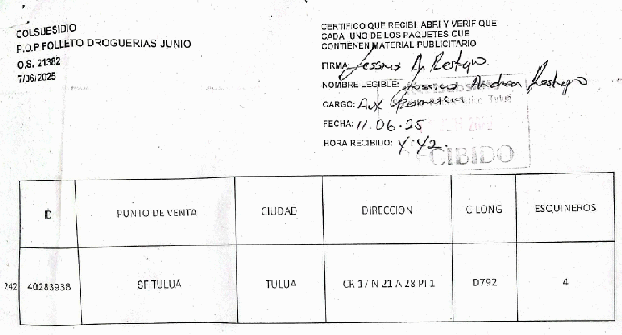 COLSUBSIDIO
P.O.P FOLLETO DROGUERIAS JUNIO
O.S. 21382
7/06/2025
CERTIFICO QUE RECIBI, ABRI Y VERIF QUE
CADA UNO DE LOS PAQUETES QUE
CONTIENEN MATERIAL PUBLICITARIO
FIRMA:
NOMBRE LEGIBLE: Andrea Restrepo
CARGO: Aux
FECHA: 11.06-25
HORA RECIBIDO: 4:42
RECIBIDO
ID PUNTO DE VENTA CIUDAD DIRECCION C LONG ESQUINEROS
242 40283938 SF TULUA TULUA CR 17 N 21 A 28 PI 1 D792 4